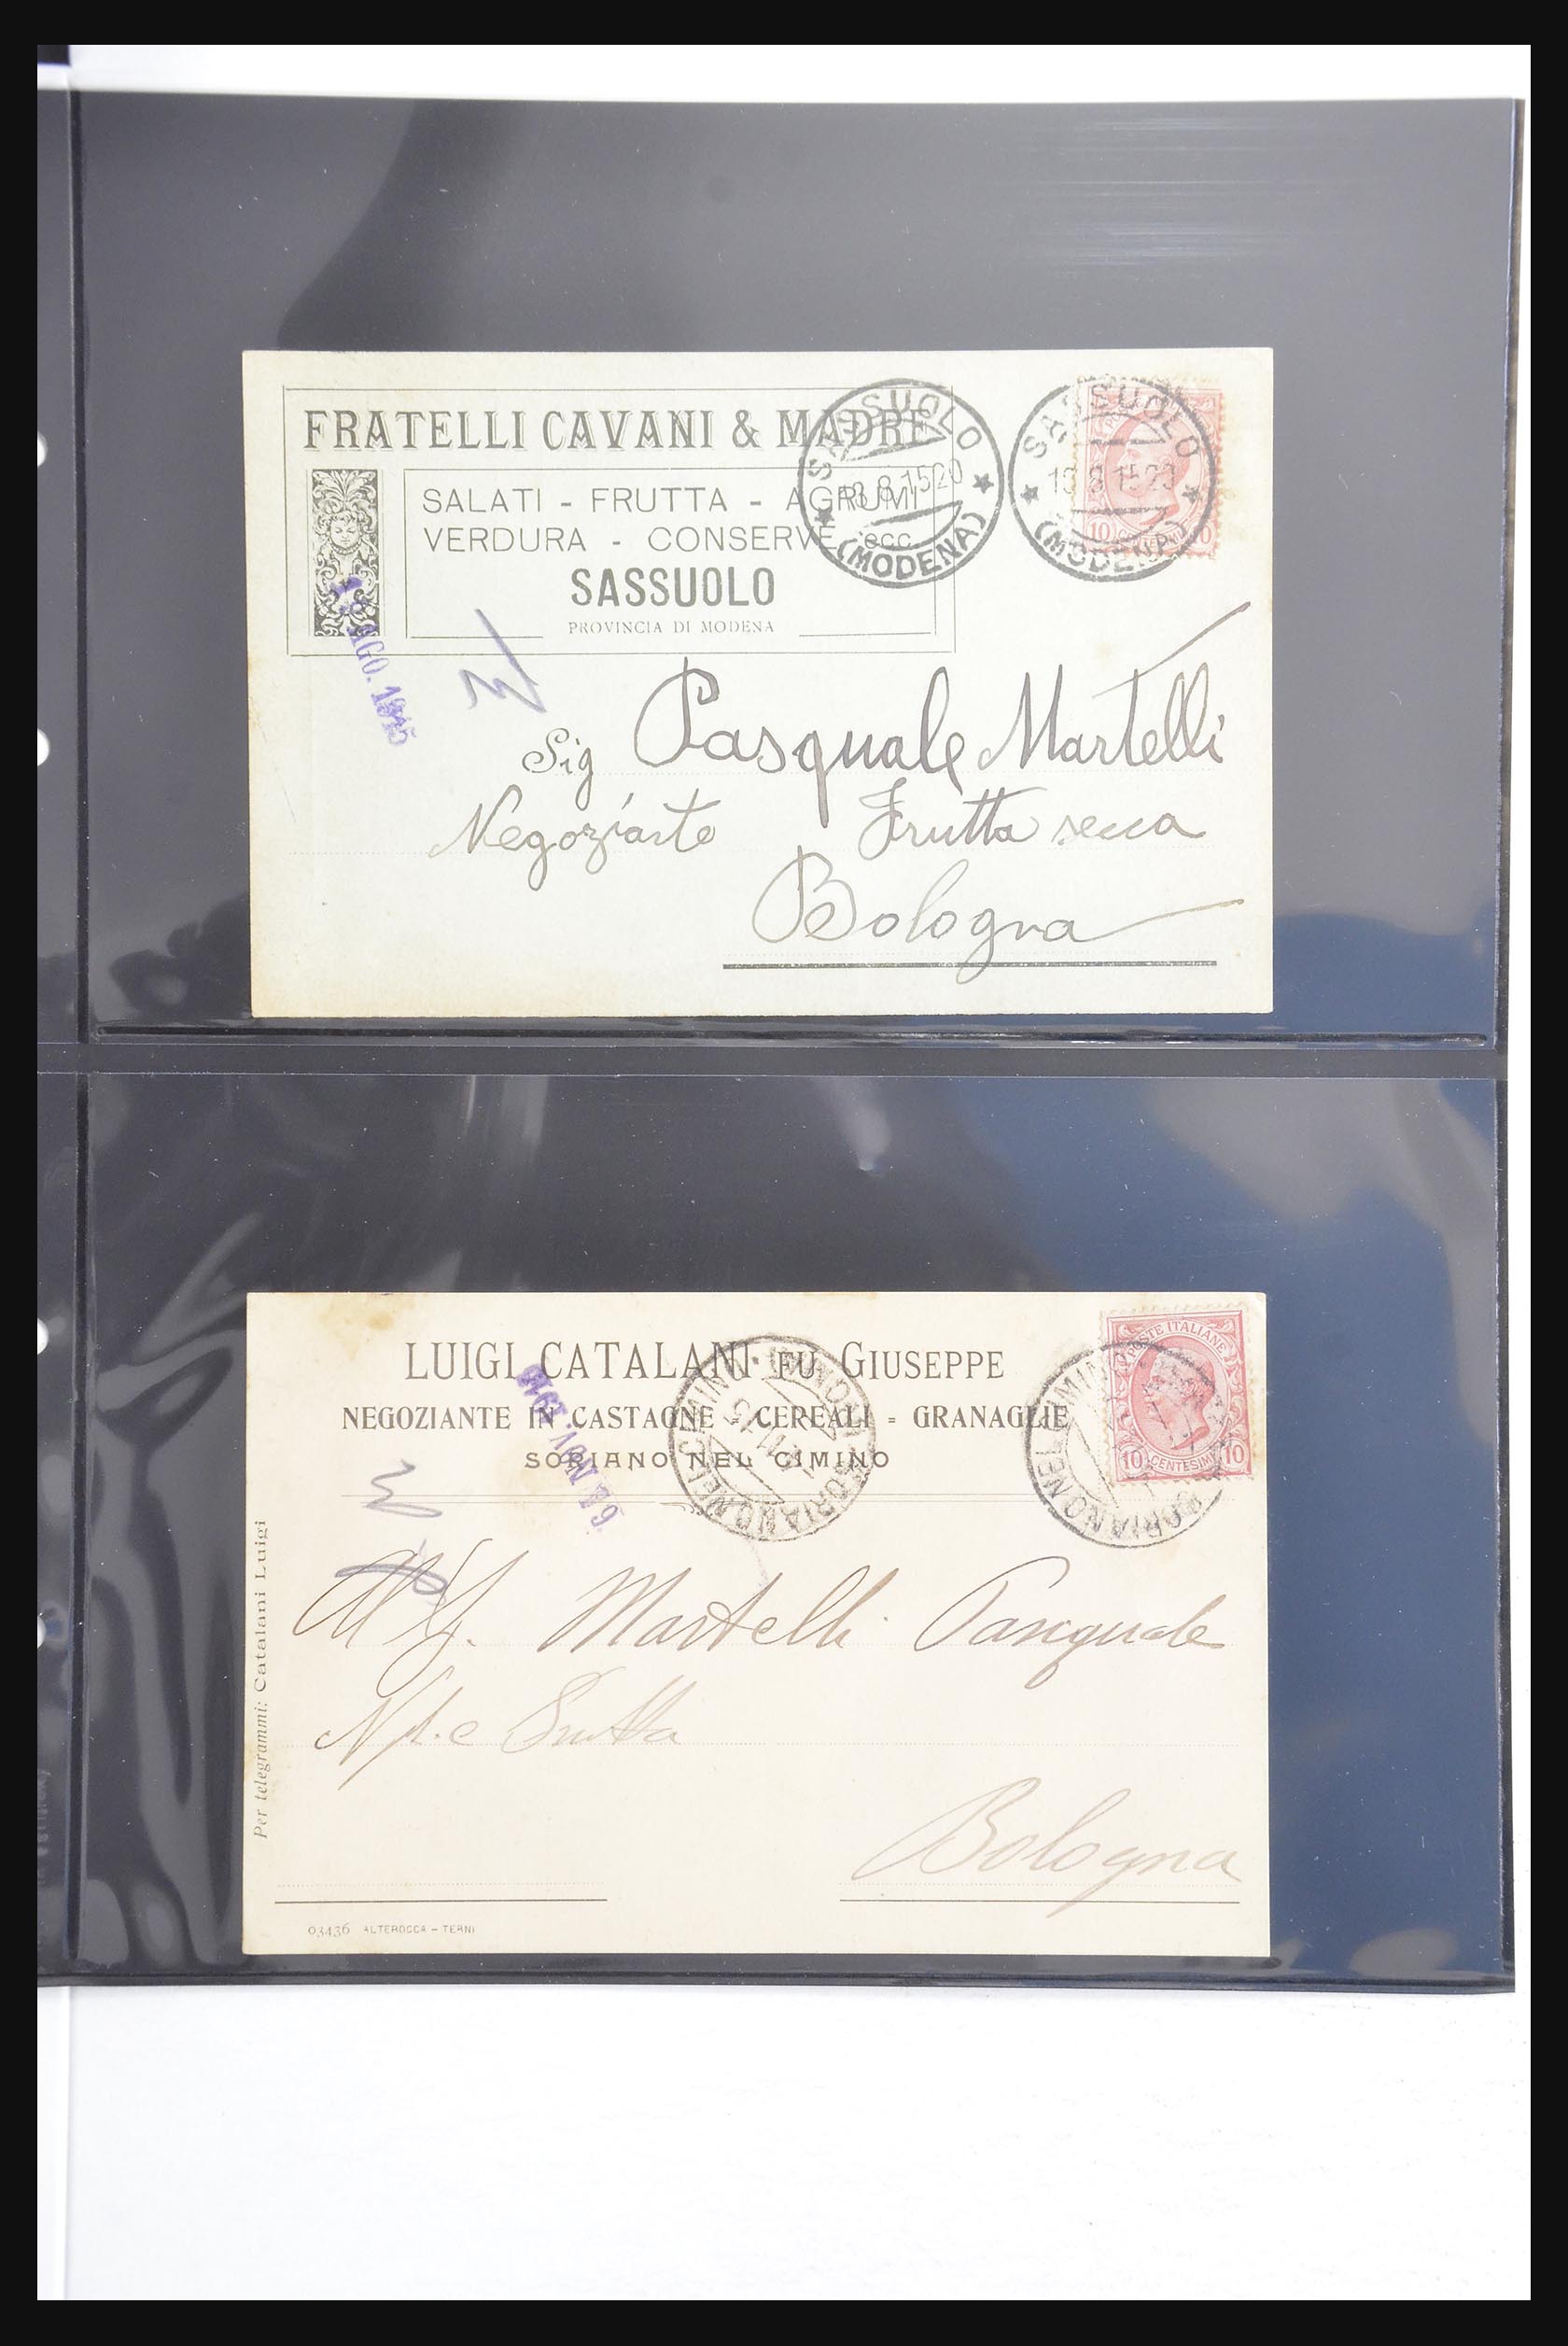 FRATELLI CAVANI & MADRE
SALATI - FRUTTA - AGRUMI
VERDURA - CONSERVE ecc.
SASSUOLO
PROVINCIA DI MODENA
SASSUOLO
13.8.15 20
(MODENA)
SASSUOLO
13.8.15 20
(MODENA)
10 CENTESIMI 10
AGO. 1915
Sig Pasquale Martelli
Negoziante Frutta secca
Bologna
LUIGI CATALANI FU GIUSEPPE
NEGOZIANTE IN CASTAGNE = CEREALI = GRANAGLIE
SORIANO NEL CIMINO
SORIANO NEL CIMINO
SORIANO NEL CIMINO
POSTE ITALIANE
10 CENTESIMI 10
NOV. 1915
Per telegrammi: Catalani Luigi
Martelli Pasquale
Frutta
Bologna
03436 ALTEROCCA - TERNI